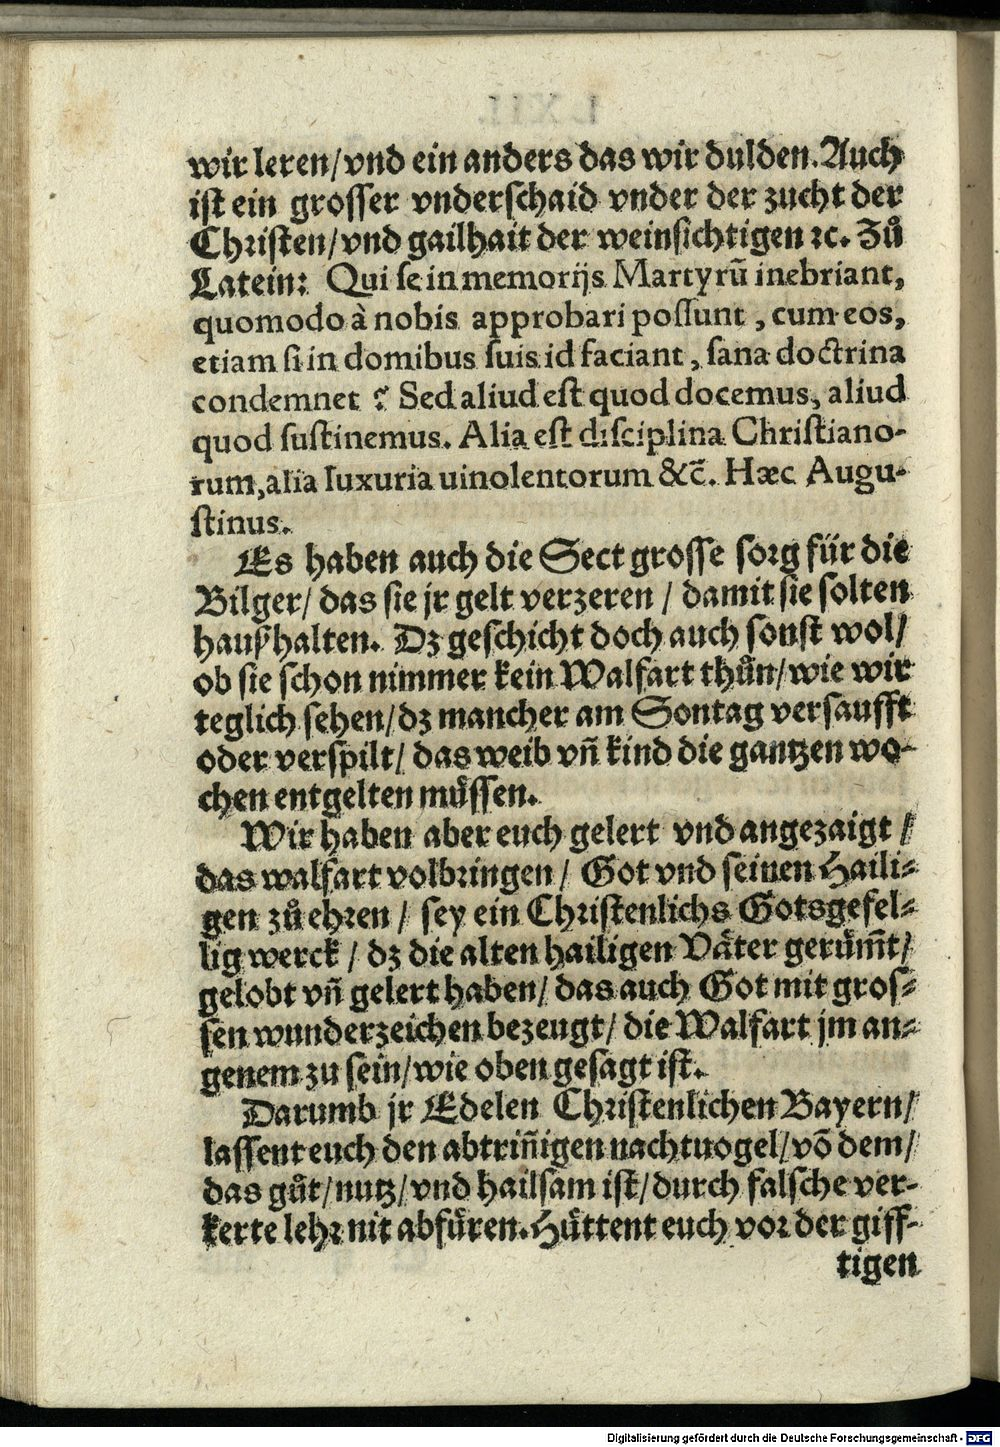 wir leren/vnd ein anders das wir dulden. Auch
ist ein grosser vnderschaid vnder der zucht der
Christen/vnd gailhait der weinsichtigen ꝛc. Zů
Latein: Qui se in memorijs Martyrũ inebriant,
quomodo à nobis approbari possunt, cum eos,
etiam si in domibus suis id faciant, sana doctrina
condemnet ? Sed aliud est quod docemus, aliud
quod sustinemus. Alia est disciplina Christiano-
rum, alia luxuria uinolentorum &c̃. Hæc Augu-
stinus.
Es haben auch die Sect grosse sorg für die
Bilger/ das sie jr gelt verzeren / damit sie solten
haußhalten. Dz geschicht doch auch sonst wol/
ob sie schon nimmer kein Walfart thůn/wie wir
teglich sehen/dz mancher am Sontag versaufft
oder verspilt/ das weib vñ kind die gantzen wo-
chen entgelten müssen.
Wir haben aber euch gelert vnd angezaigt /
das walfart volbringen/ Got vnd seinen Haili-
gen zů ehren / sey ein Christenlichs Gotsgefel-
lig werck / dz die alten hailigen Väter gerům̃t/
gelobt vñ gelert haben/ das auch Got mit gros-
sen wunderzeichen bezeugt/ die Walfart jm an-
genem zu sein/wie oben gesagt ist.
Darumb jr Edelen Christenlichen Bayern/
lassent euch den abtriñigen nachtuogel/võ dem/
das gůt/nutz/vnd hailsam ist/durch falsche ver-
kerte lehr nit abfüren. Hüttent euch vor der giff-
tigen
Digitalisierung gefördert durch die Deutsche Forschungsgemeinschaft - DFG